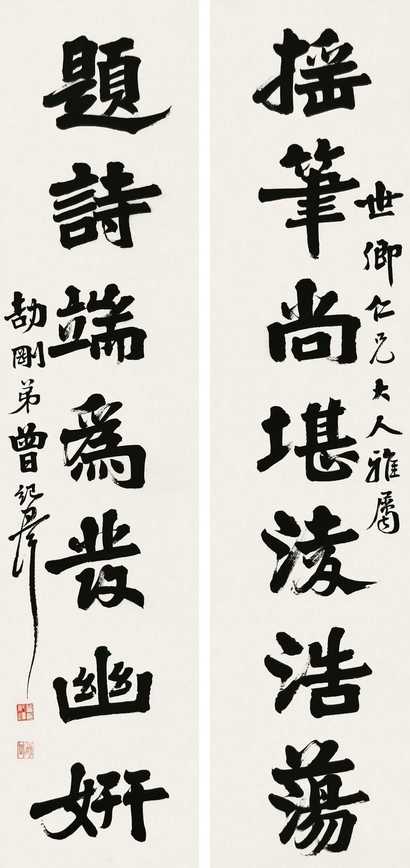 世卿仁兄大人雅屬
搖筆尚堪淩浩蕩
題詩端爲發幽妍
劼剛弟曾紀澤